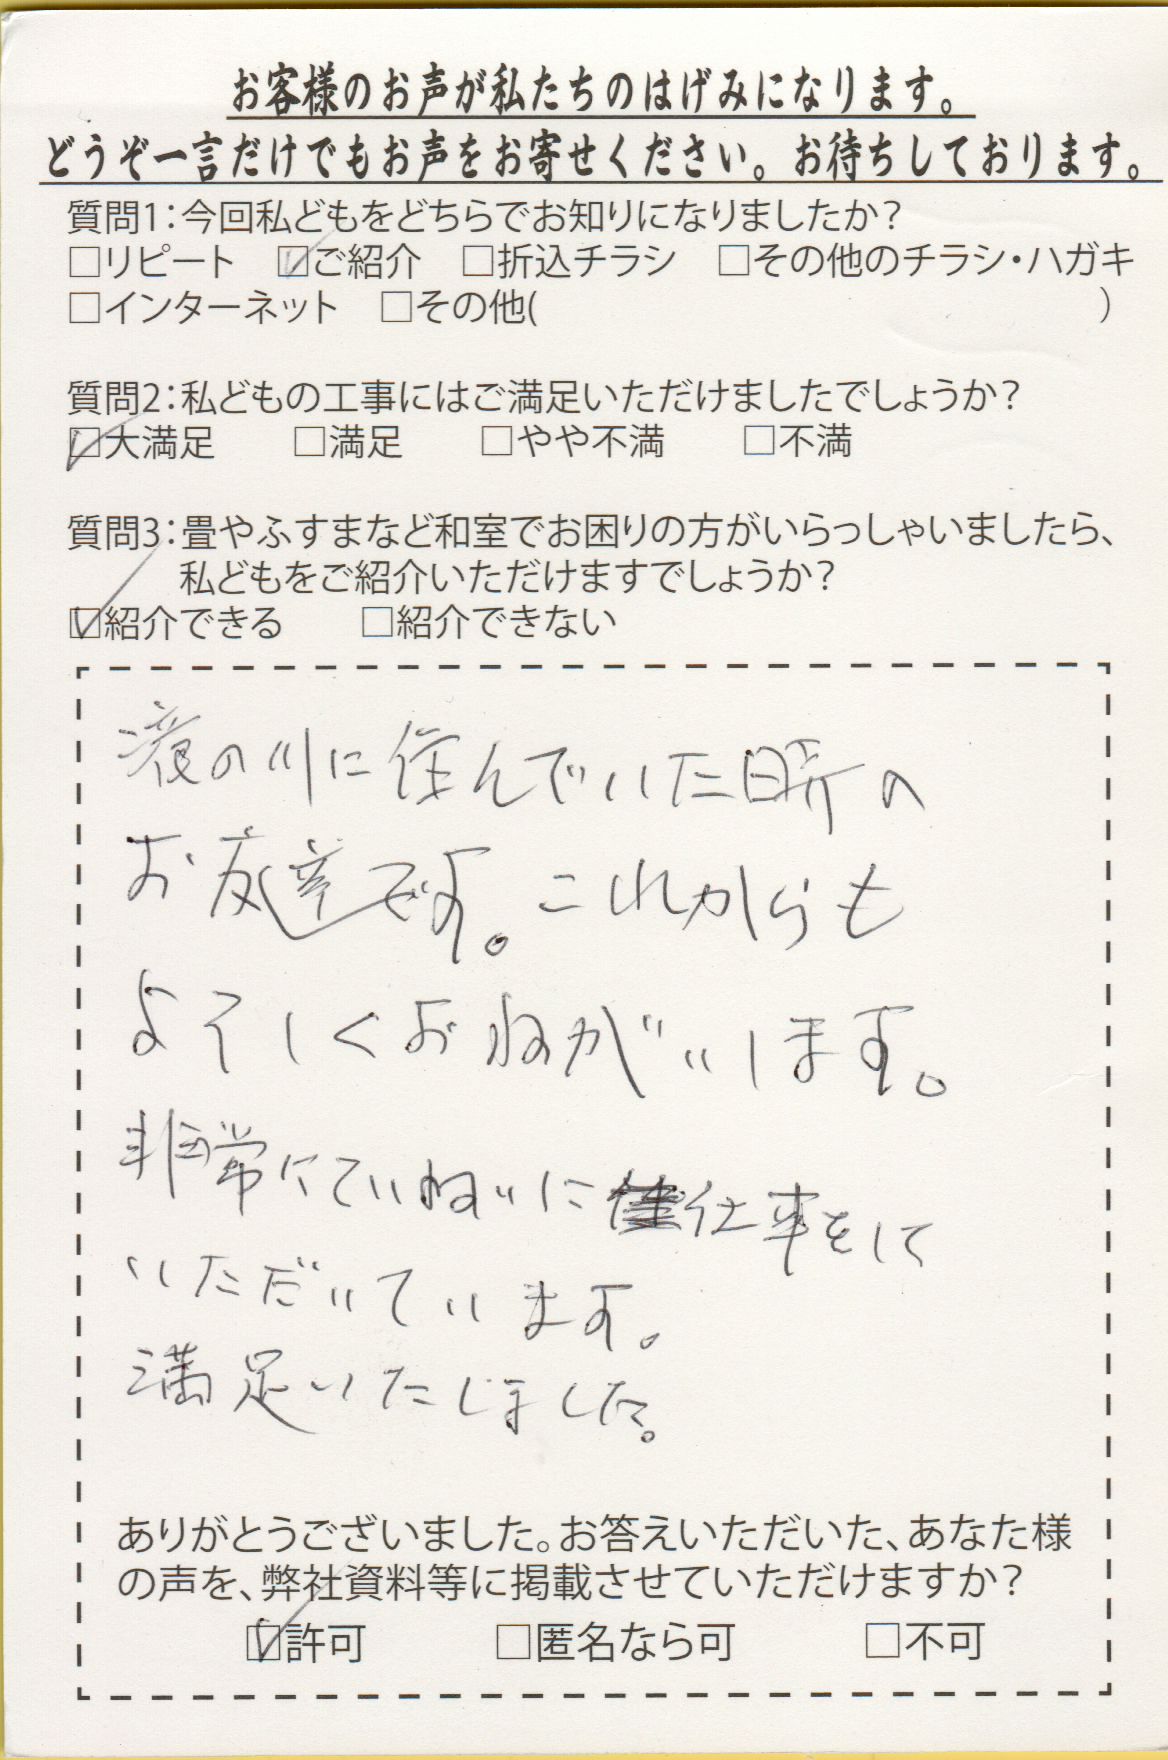 お客様のお声が私たちのはげみになります。
どうぞ一言だけでもお声をお寄せください。お待ちしております。
質問1:今回私どもをどちらでお知りになりましたか?
□リピート ☑ご紹介 □折込チラシ □その他のチラシ・ハガキ
□インターネット □その他( )
質問2:私どもの工事にはご満足いただけましたでしょうか?
☑大満足 □満足 □やや不満 □不満
質問3:畳やふすまなど和室でお困りの方がいらっしゃいましたら、
私どもをご紹介いただけますでしょうか?
☑紹介できる □紹介できない
滝の川に住んでいた時の
お友達です。これからも
よろしくおねがいします。
非常にていねいに仕事をして
いただいています。
満足いたしました。
ありがとうございました。お答えいただいた、あなた様
の声を、弊社資料等に掲載させていただけますか?
☑許可 □匿名なら可 □不可